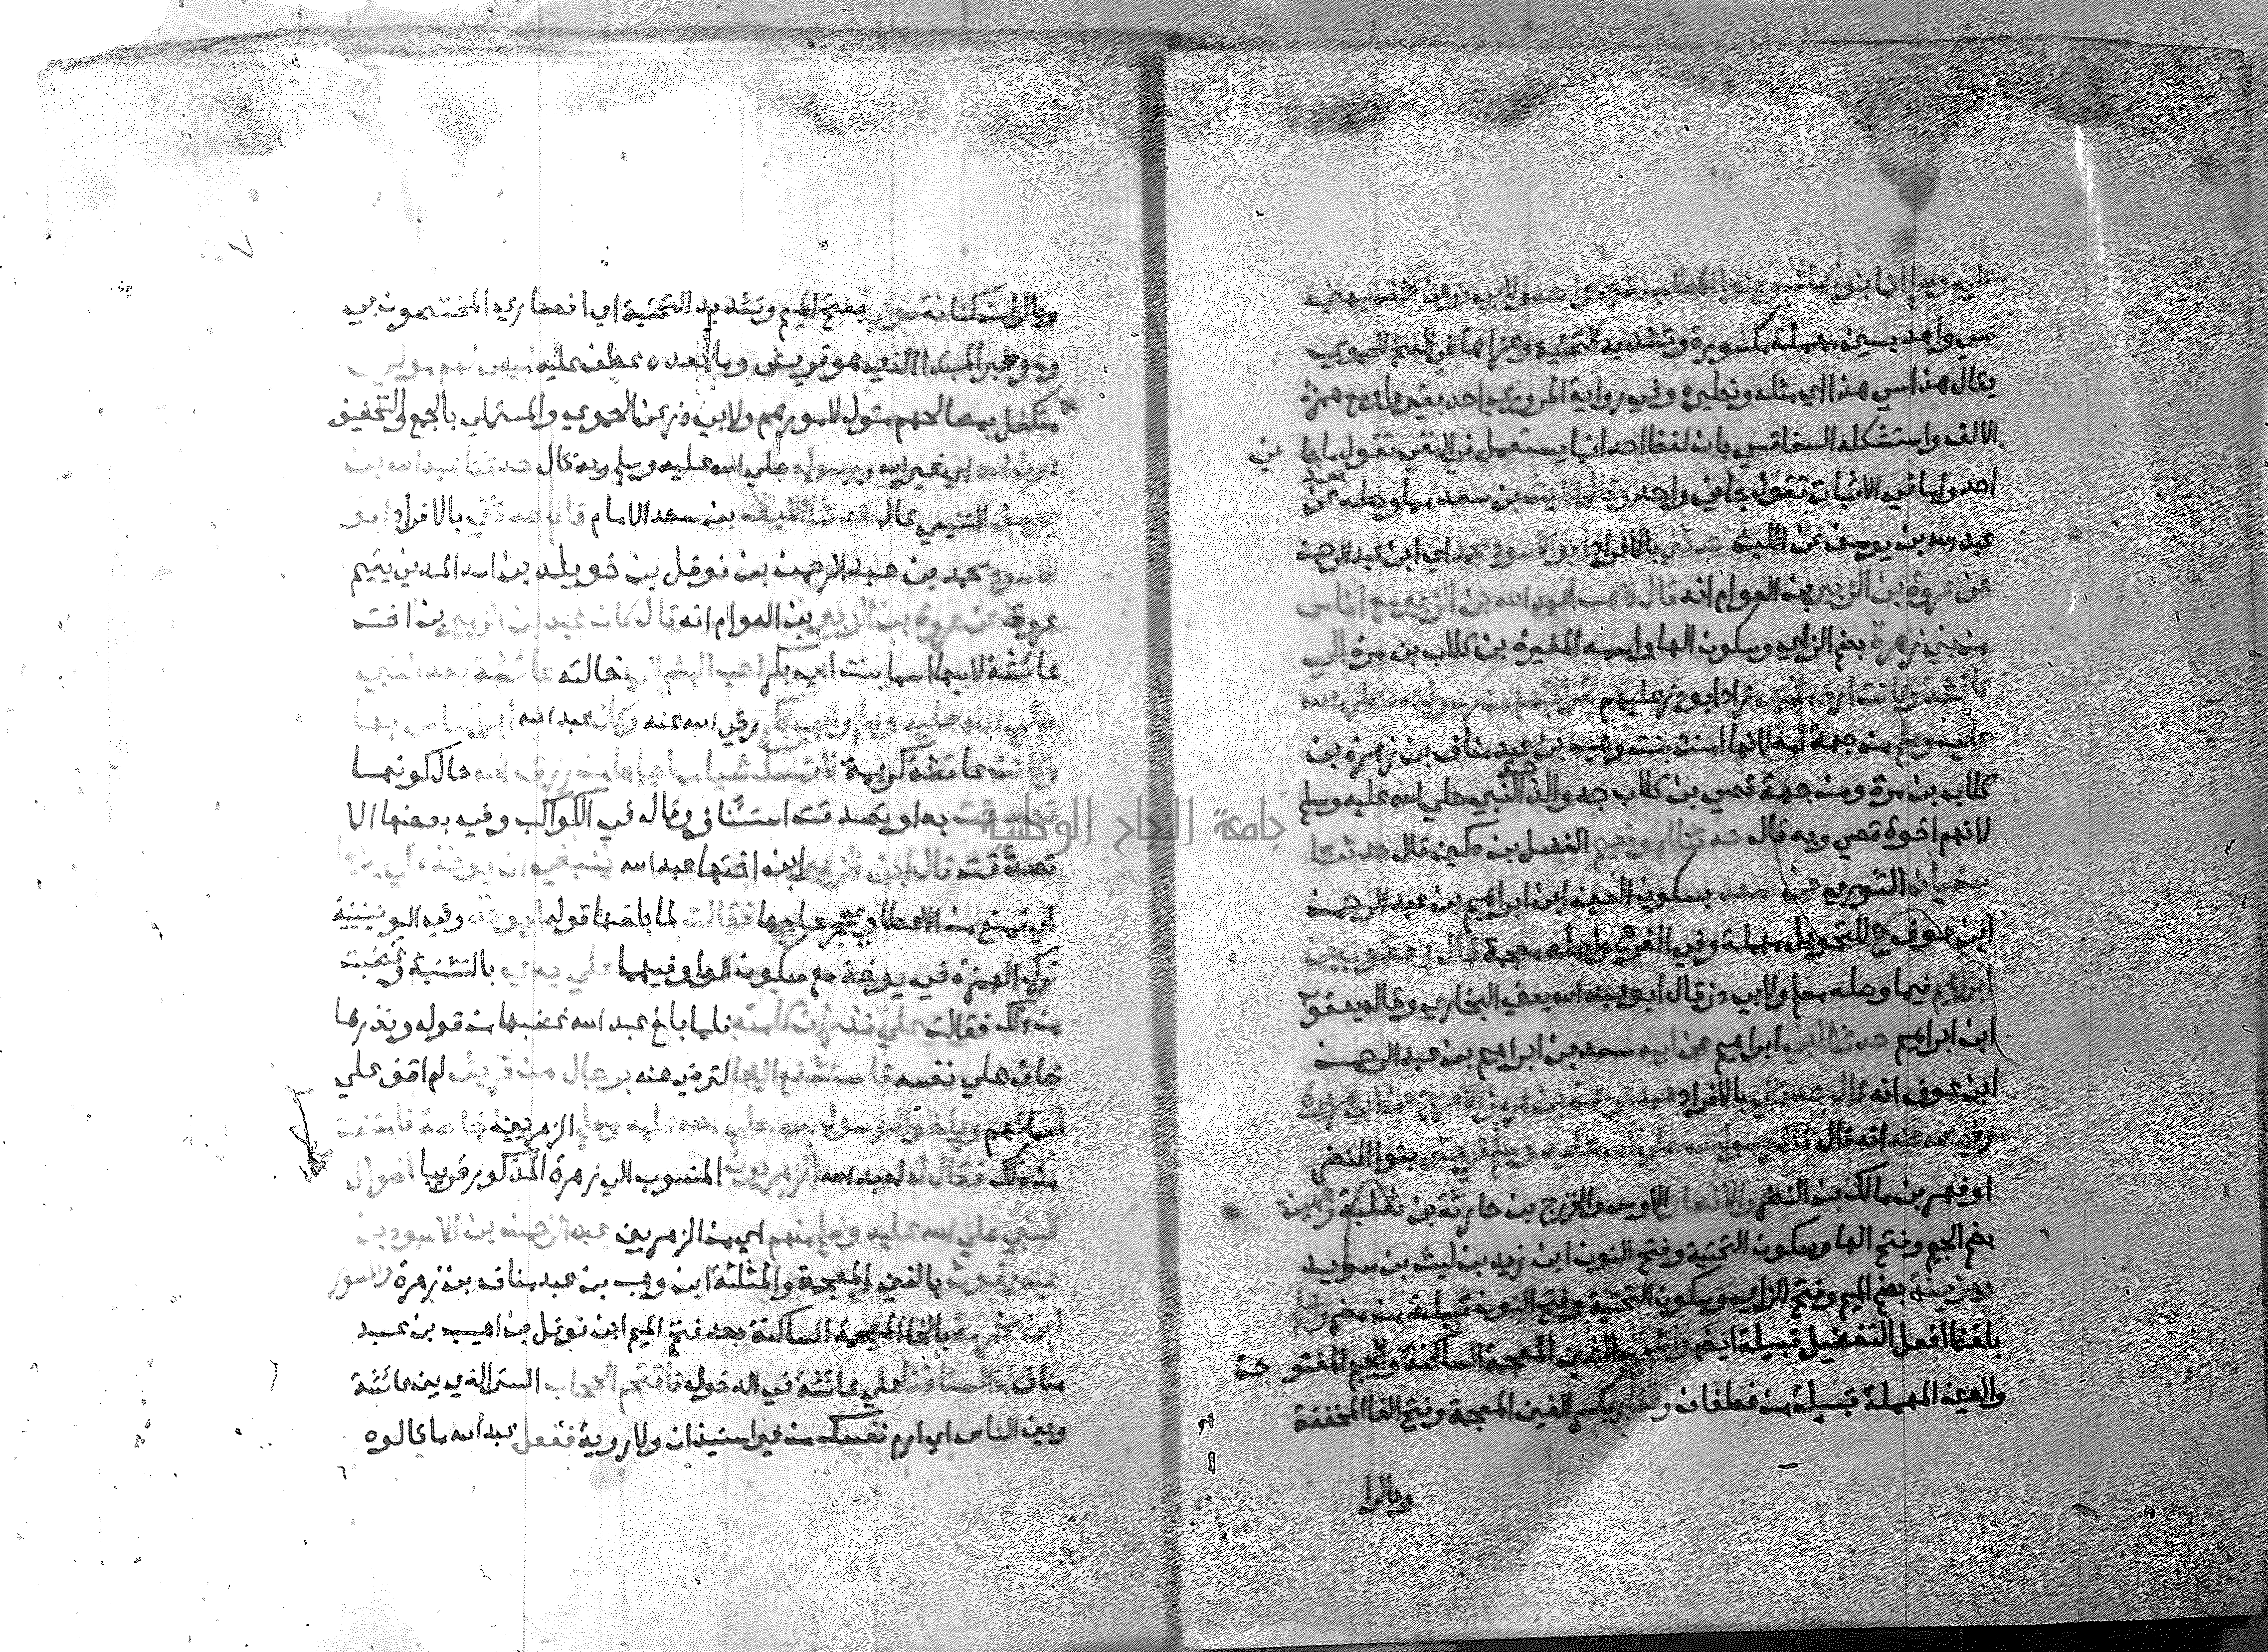 عليه وسلم انما بنوا هاشم وبنوا المطلب شي واحد ولابي ذر عن الكشميهني
سي واحد بسين مهملة مكسورة وتشديد التحتية وعزاها في الفتح للحموي
يقال هذا سي هذا اي مثله ونظيره وفي رواية المروزي احد بغير واو مع همزة
الالف واستشكله السفاقسي بان لفظ احد انما يستعمل في النفي تقول ما جاني
احد واما في الاثبات تقول جاني واحد وقال الليث بن سعد مما وصله بعد عن
عبد الله بن يوسف عن الليث حدثني بالافراد ابو الاسود محمد اي ابن عبد الرحمن
عن عروة بن الزبير بن العوام انه قال ذهب عبد الله بن الزبير مع اناس
من بني زهرة بضم الزاي وسكون الها واسمه المغيرة بن كلاب بن مرة الي
عائشة وكانت ارق شي زاد ابو ذر عليهم لقرابتهم من رسول الله صلي الله
عليه وسلم من جهة امه لانها امنة بنت وهب بن عبد مناف بن زهرة بن
كلاب بن مرة ومن جهة قصي بن كلاب جد والد جد النبي صلي الله عليه وسلم
لانهم اخوة قصي وبه قال حدثنا ابو نعيم الفضل بن دكين قال حدثنا
سفيان الثوري عن سعد بسكون العين ابن ابراهيم بن عبد الرحمن
ابن عوف ح للتحويل مهملة وفي الفرع واصله معجمة قال يعقوب بن
ابراهيم فيما وصله مسلم ولابي ذر قال ابو عبد الله يعني البخاري وقال يعقوب
ابن ابراهيم حدثنا ابي ابراهيم عن ابيه سعد بن ابراهيم بن عبد الرحمن
ابن عوف انه قال حدثني بالافراد عبد الرحمن بن هرمز الاعرج عن ابي هريرة
رضي الله عنه انه قال قال رسول الله صلي الله عليه وسلم قريش بنوا النضر
او فهر بن مالك بن النضر والانصار الاوس والخزرج بن حارثة بن ثعلبة وجهينة
بضم الجيم وفتح الها وسكون التحتية وفتح النون ابن زيد بن ليث بن سويد
ومزينة بضم الميم وفتح الزاي وسكون التحتية وفتح النون قبيلة من مضر واسلم
بلفظ افعل التفضيل قبيلة ايضا واشجع بالشين المعجمة الساكنة والجيم المفتوحة
والعين المهملة قبيلة من غطفان وغفار بكسر الغين المعجمة وفتح الفا المخففة
وبالرا
٧
وبالرا من كنانة موالي بفتح الميم وتشديد التحتية اي انصاري المختصون بي
وهو خبر المبتدا الذي هو قريش وما بعده عطف عليه ليس لهم مولي
متكفل بمصالحهم متول لامورهم ولابي ذر عن الحموي والمستملي بالجمع والتخفيف
دون الله اي غير الله ورسوله صلي الله عليه وسلم وبه قال حدثنا عبد الله بن
يوسف التنيسي قال حدثنا الليث بن سعد الامام قال حدثني بالافراد ابو
الاسود محمد بن عبد الرحمن بن نوفل بن خويلد بن اسد المدني يتيم
عروة عن عروة بن الزبير بن العوام انه قال كان عبد الله بن الزبير بن اخت
عائشة لابيها اسما بنت ابي بكر احب البشر الي خالته عائشة بعد النبي
صلي الله عليه وسلم وابي بكر رضي الله عنه وكان عبد الله ابر الناس بها
وكانت عائشة كريمة لا تمسك شيا مما جاها من رزق الله حال كونها
تصدقت به او تصدقت استئناف وقال في الكواكب وفي بعضها الا
تصدقت قال ابن الزبير ابن اختها عبد الله ينبغي ان يوخذ علي يديها
اي تمنع من الاعطا ويحجر عليها فقالت لما بلغها قوله ايوخذ وفي اليونينية
ترك الهمزة في يوخذ مع سكون الواو فيهما علي يدي بالتثنية وغضبت
من ذلك فقالت علي نذر ان كلمته فلما بلغ عبد الله غضبها من قوله ونذرها
خاف علي نفسه فاستشفع اليها لترضي عنه برجال من قريش لم اقف علي
اسمائهم وباخوال رسول الله صلي الله عليه وسلم الزهريين خاصة فامتنعت
من ذلك فقال له لعبد الله الزهريون المنسوب الي زهرة المذكور قريبا اخوال
النبي صلي الله عليه وسلم منهم اي من الزهريين عبد الرحمن بن الاسود بن
عبد يغوث بالغين المعجمة والمثلثة ابن وهب بن عبد مناف بن زهرة والمسور
ابن مخرمة بالخا المعجمة الساكنة بعد فتح الميم ابن نوفل بن اهيب بن عبد
مناف اذا استاذنا علي عائشة في الدخول فاقتحم الحجاب الستر الذي بين عائشة
وبين الناس اي ارم نفسك من غير استيذان ولا روية ففعل عبد الله ما قالوه
جامعة النجاح الوطنية